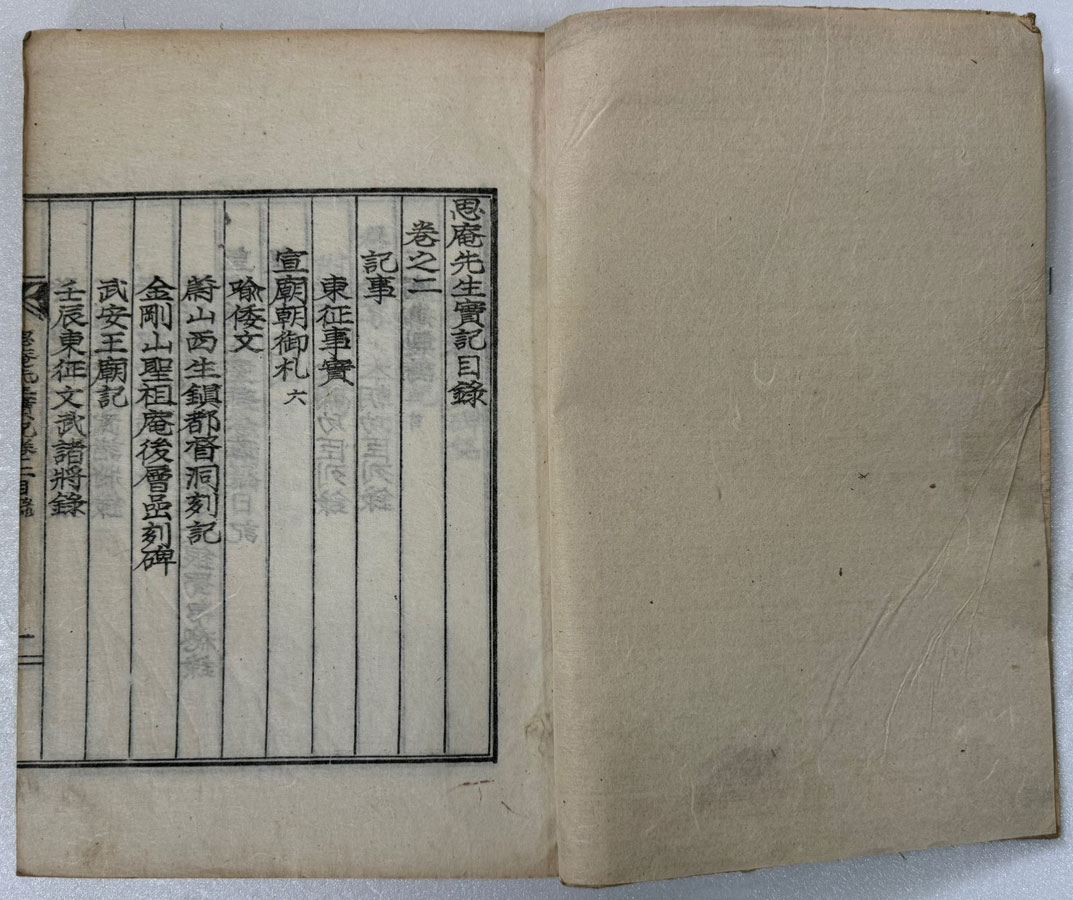 思庵先生實記目錄
卷之二
記事
東征事實
宣廟朝御札六
喩倭文
蔚山西生鎭都督洞刻記
金剛山聖祖庵後層嵒刻碑
武安王廟記
壬辰東征文武諸將錄
思庵先生實記卷二目錄
一